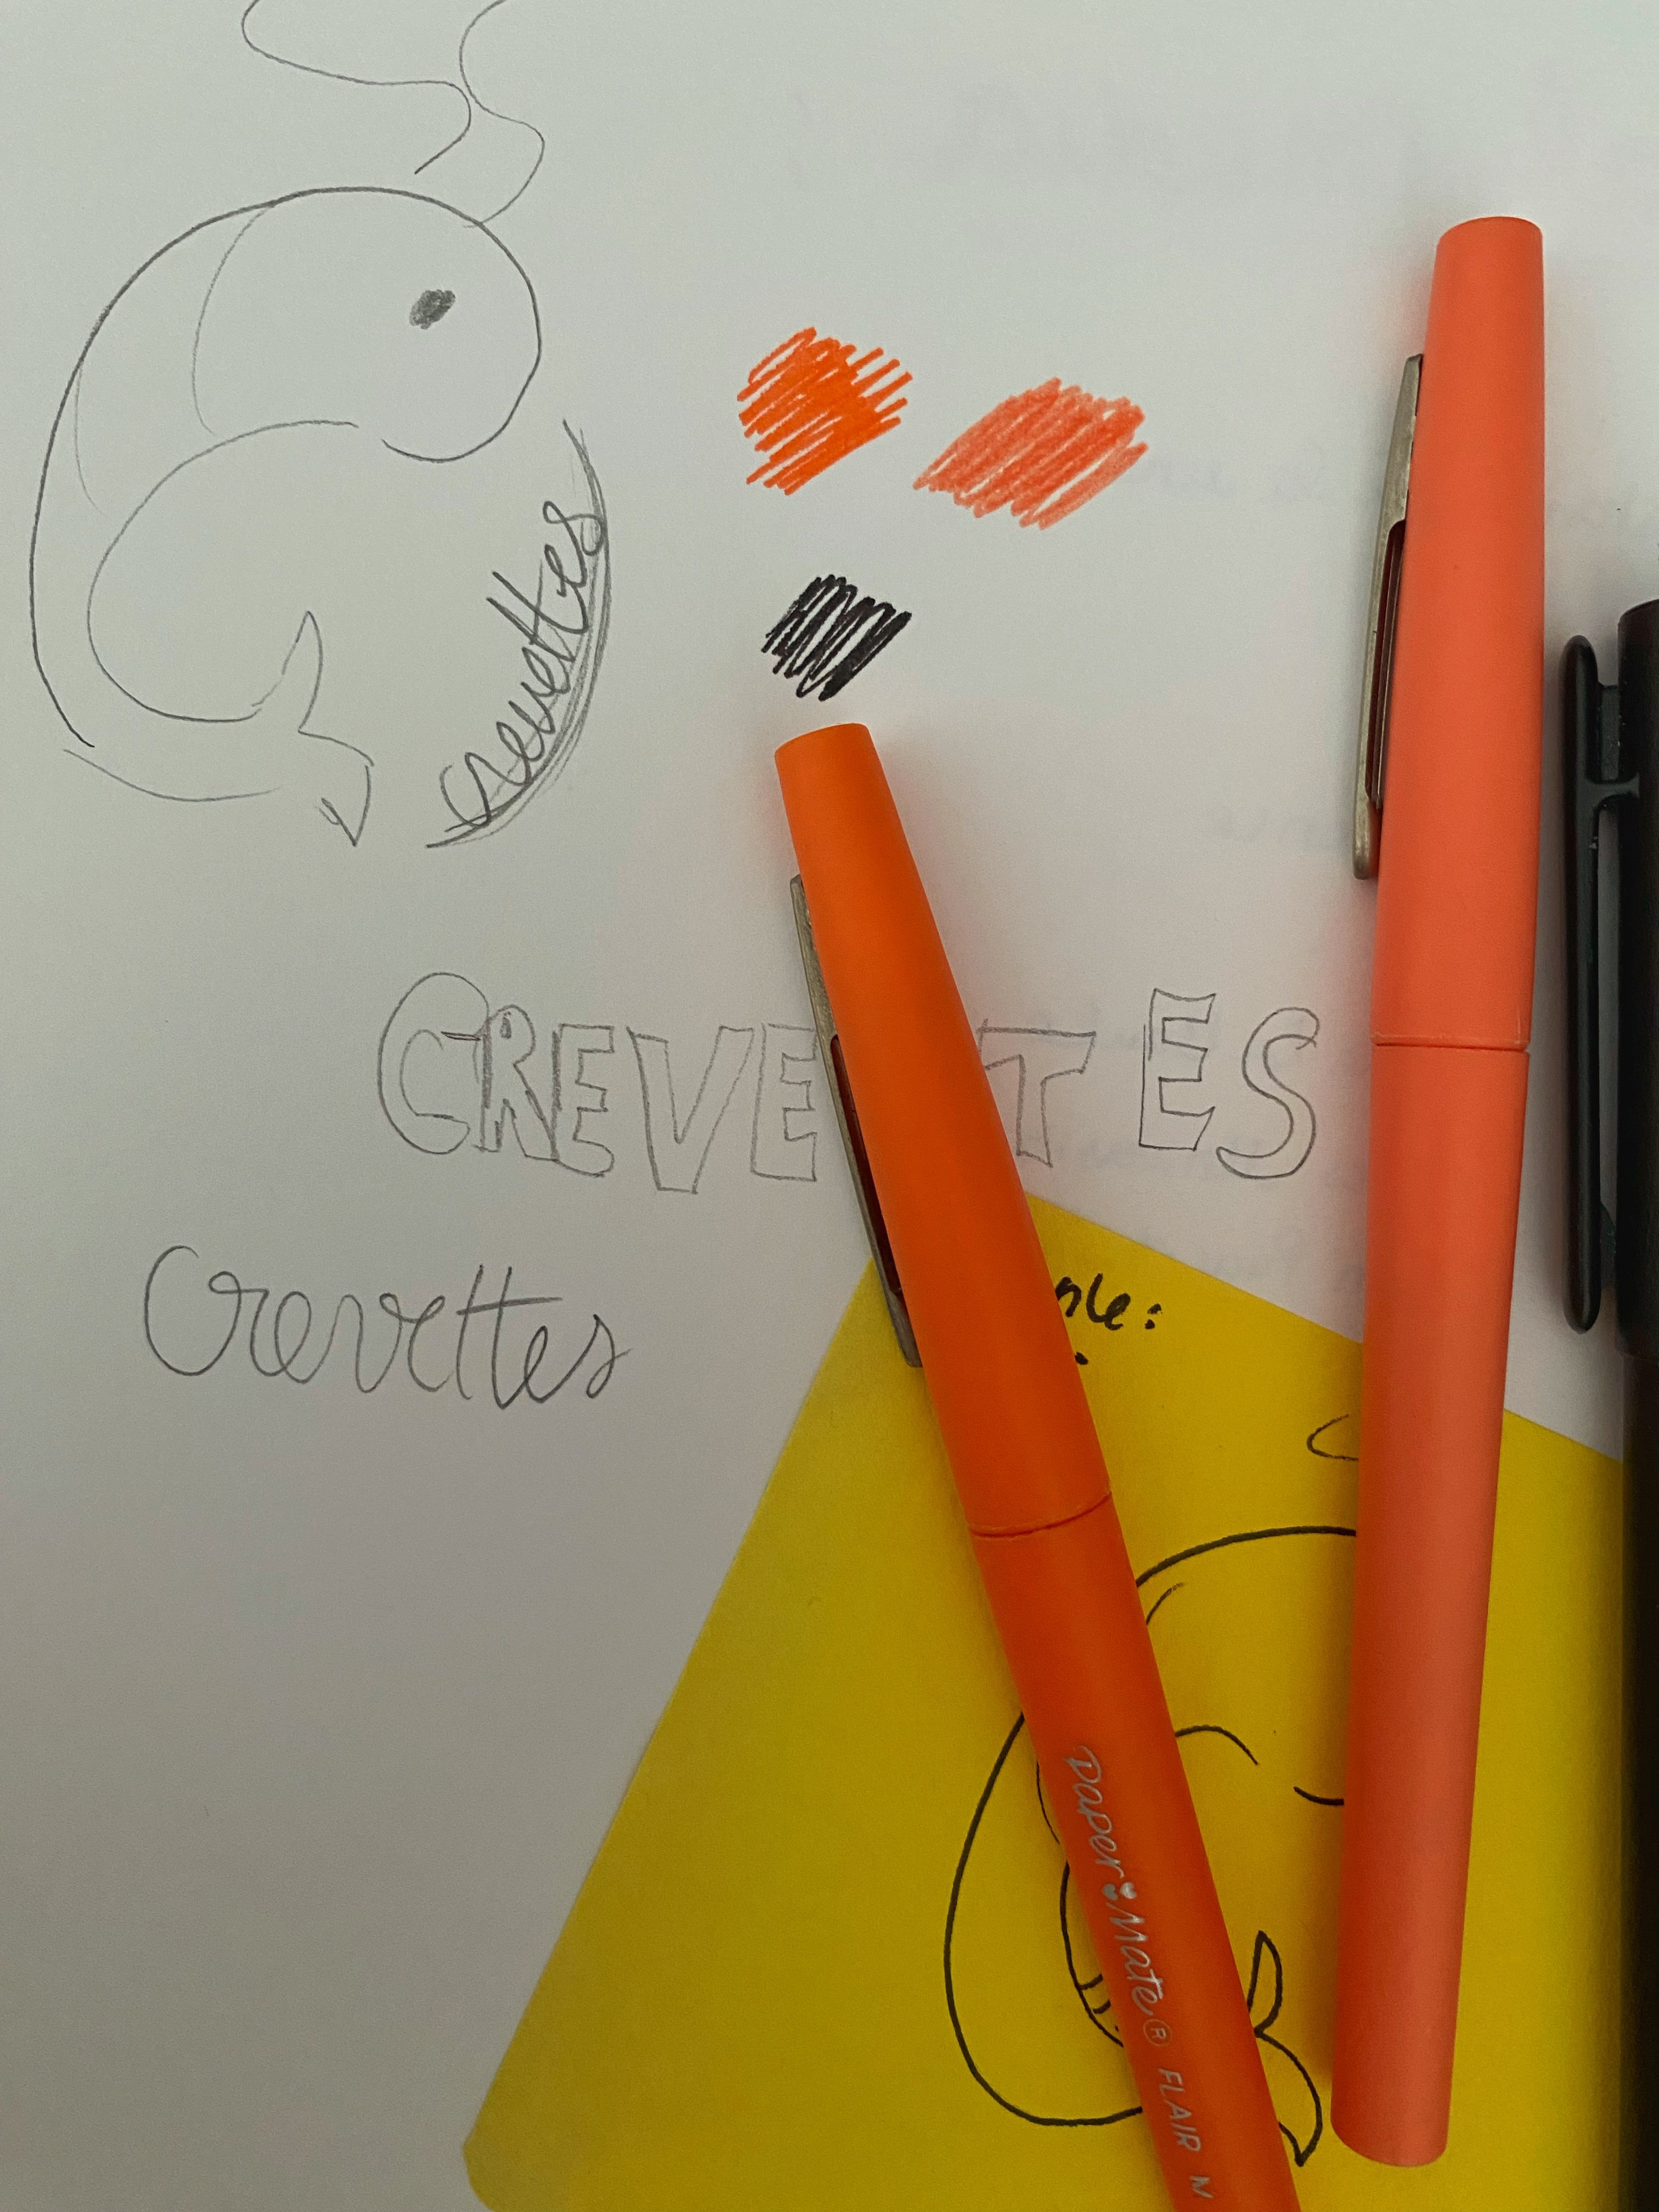 crevettes
CREVE TES
Crevettes
Paper Mate® FLAIR